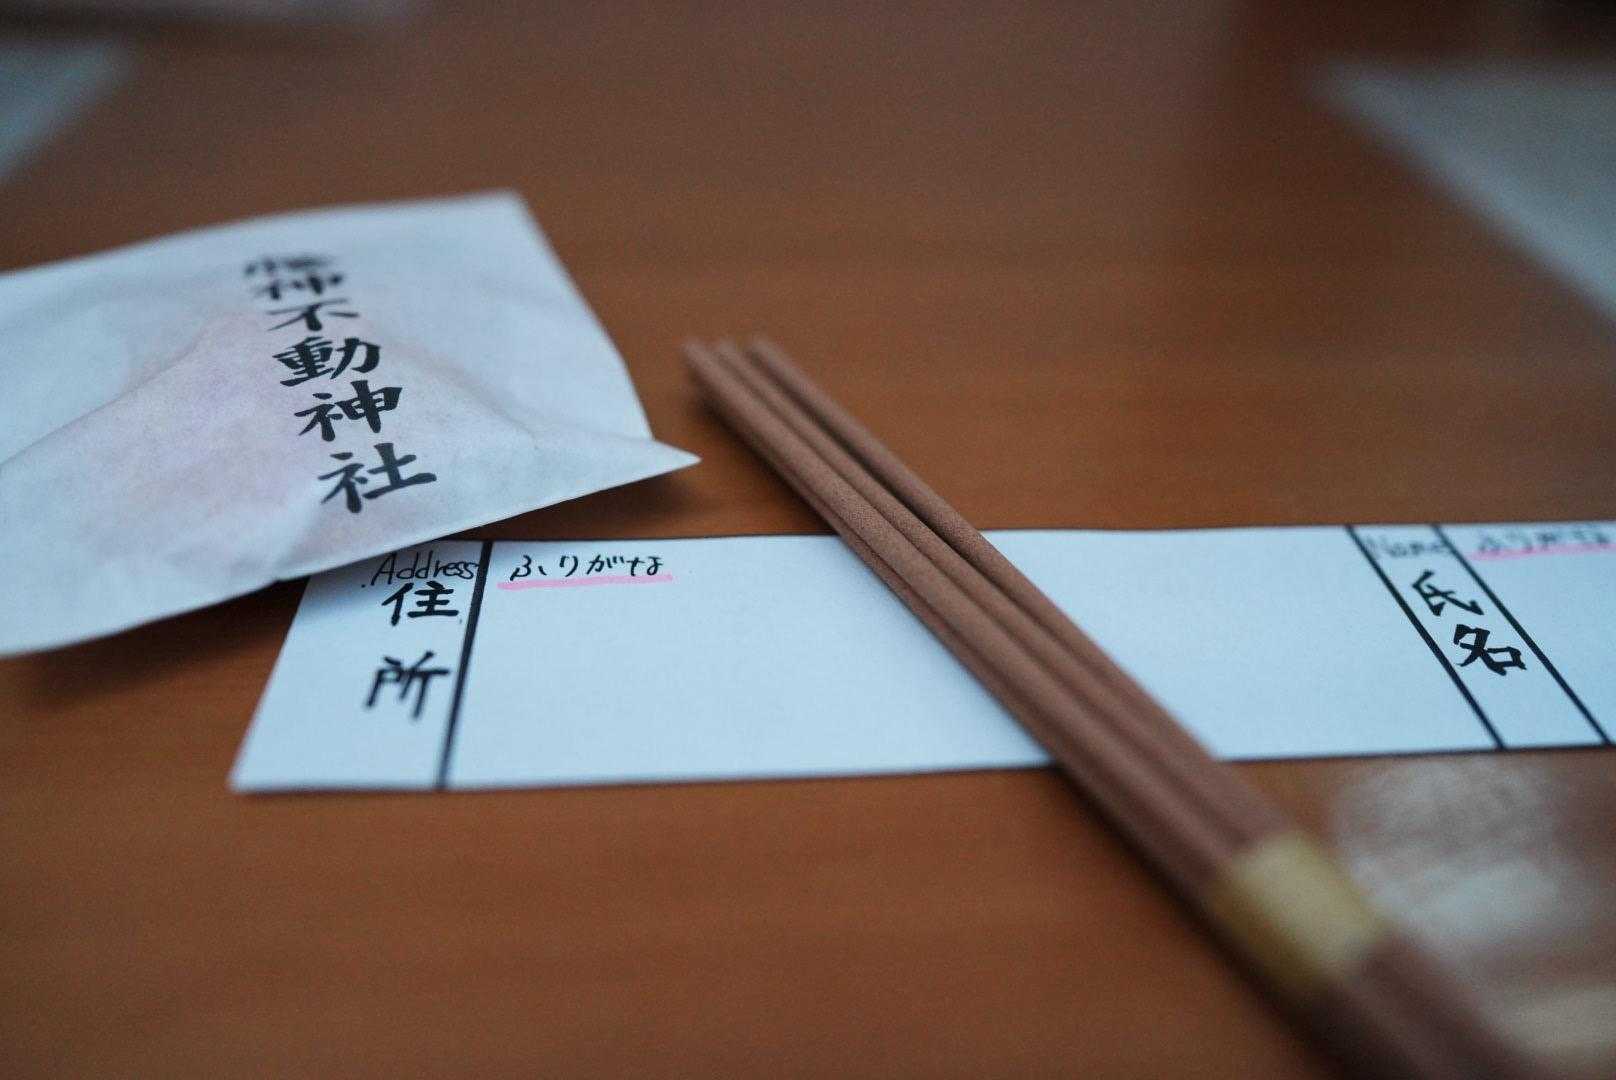 神不動神社
Address
住所
ふりがな
Name
氏名
ふりがな